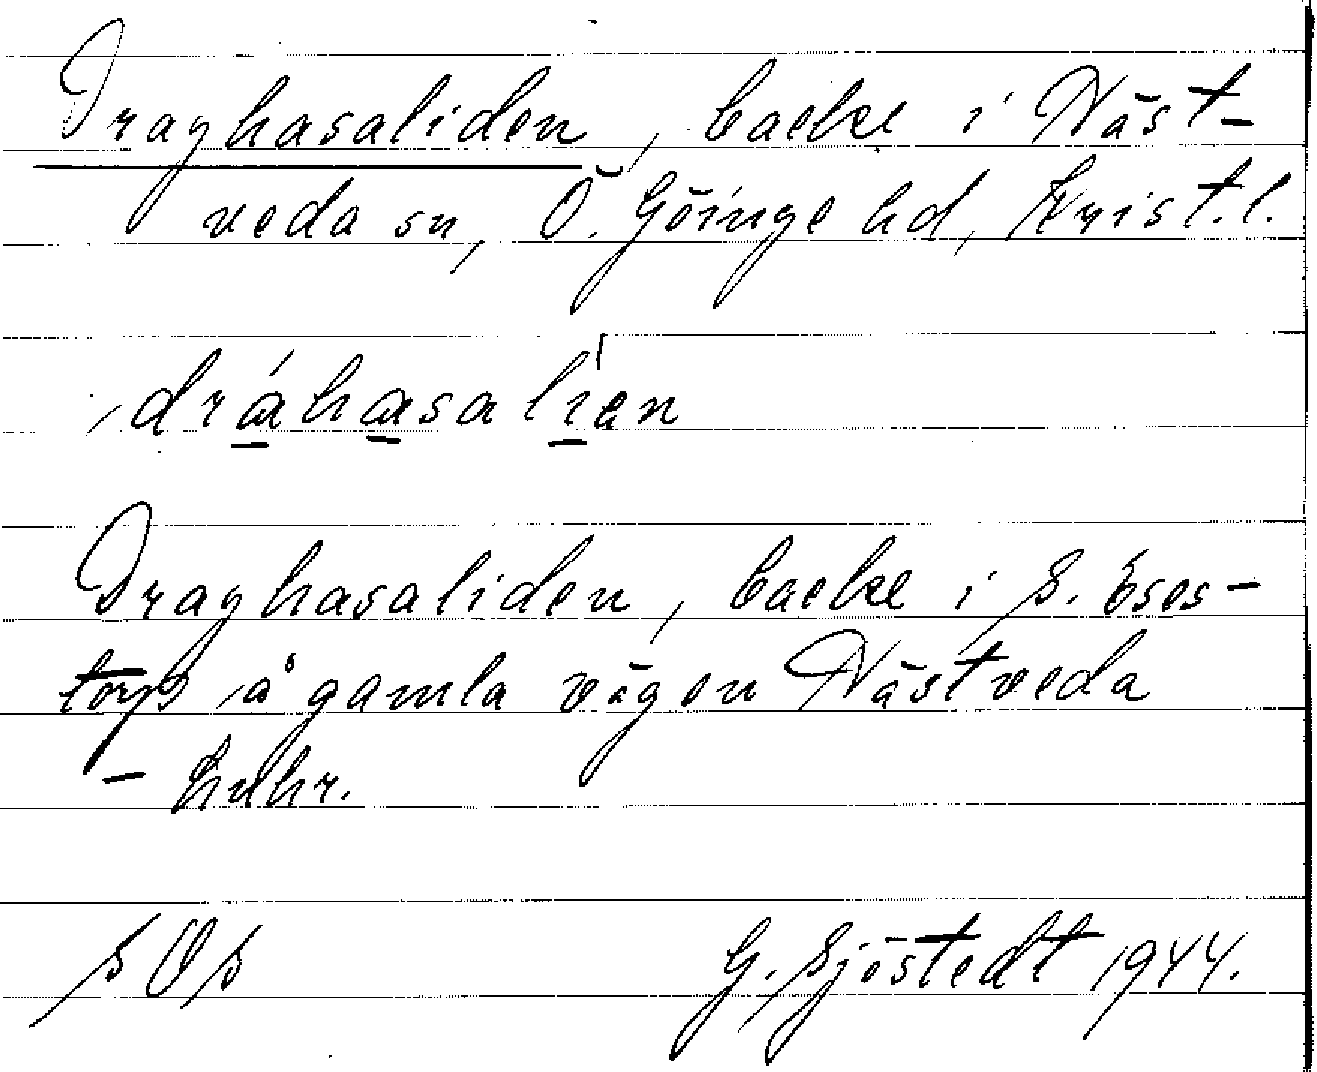 Draghasaliden, backe i Näst-
veda sn, Ö. Göinge hd, Krist. l.
dráhasali'en
Draghasaliden, backe i S. Eses-
torp å gamla vägen Nästveda
- Luhr.
SOS G. Sjöstedt 1944.